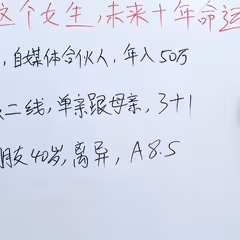 这个女生,未来十年命运
,自媒体合伙人,年入50万
二线,单亲跟母亲,3+1
朋友40岁,离异,A8.5